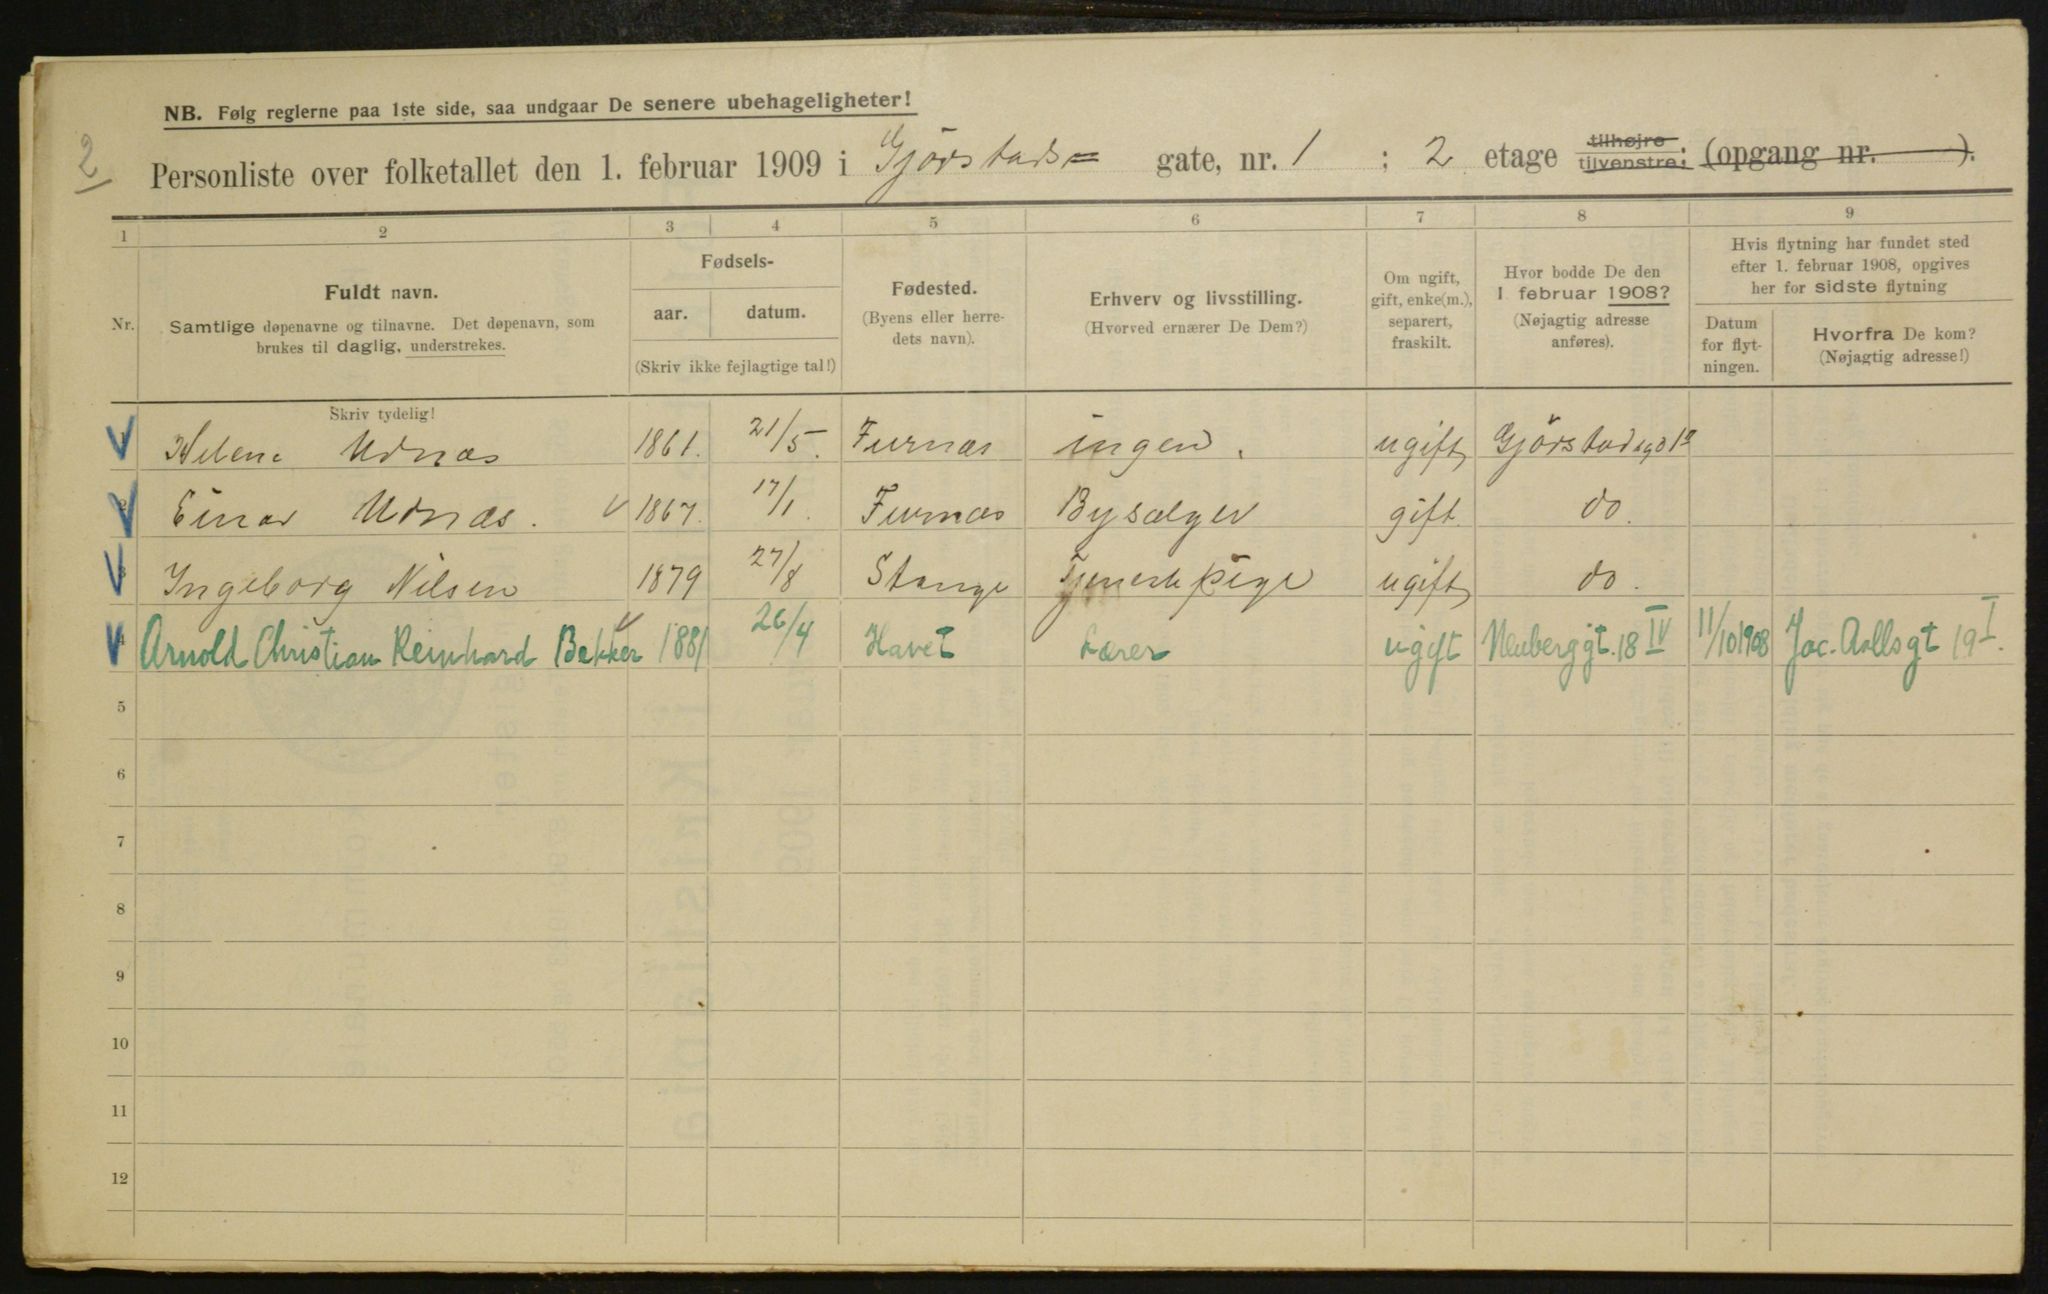 NB. Følg reglerne paa 1ste side, saa undgaar De senere ubehageligheter!
2
Personliste over folketallet den 1. februar 1909 i Gjörstads= gate, nr. 1 ; 2 etage tilhøjre tilvenstre; (opgang nr. ).
1 2 3 4 5 6 7 8 9
Nr.
Fuldt navn.
Samtlige døpenavne og tilnavne. Det døpenavn, som
brukes til daglig, understrekes.
Fødsels-
aar. datum.
(Skriv ikke fejlagtige tal!)
Fødested.
(Byens eller herre-
dets navn).
Erhverv og livsstilling.
(Hvorved ernærer De Dem?)
Om ugift,
gift, enke(m.),
separert,
fraskilt.
Hvor bodde De den
1 februar 1908?
(Nøjagtig adresse
anføres).
Hvis flytning har fundet sted
efter 1. februar 1908, opgives
her for sidste flytning
Datum
for flyt-
ningen.
Hvorfra De kom?
(Nøjagtig adresse!)
Skriv tydelig!
Helene Udnæs 1861. 21/5. Furnæs ingen. ugift
2 Einar Udnæs. 1867. 17/1. Furnæs Bysælger gift. do.
3 Ingeborg Nilsen 1879 27/8 Stange Tjenestepige ugift do.
4 Arnold Christian Reinhard Bakker 1881 26/4 Havet Lærer ugift Neuberggt. 18 IV 11/10 1908 Jac. Aallsgt 19 I.
5
6
7
8
9
10
11
12